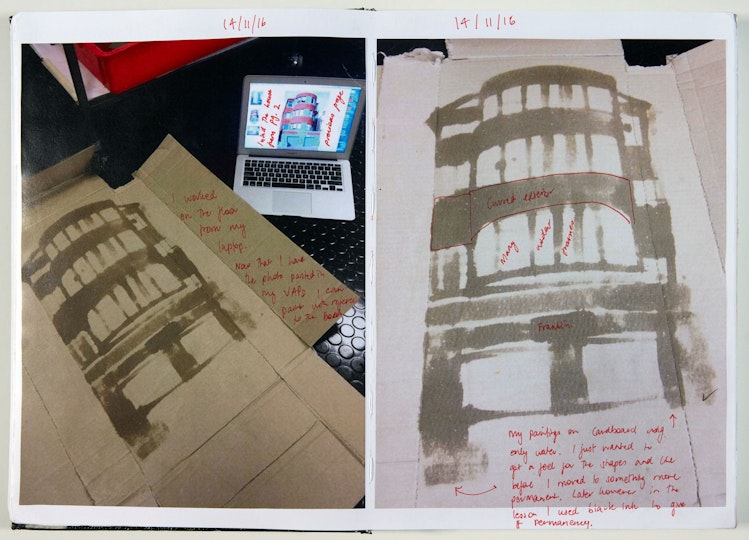 14/11/16
I worked
on the floor
from my
laptop.
Now that I have
the photo pasted in
my VAPD I can
paint with reference
to the book
Inked the house
from pg. 2
previous page
14/11/16
Curved exterior
Many
window
frames
Franklin
My paintings on cardboard using
only water. I just wanted to
get a feel for the shapes and line
before I moved to something more
permanent. Later however in the
lesson I used black ink to give
it permanency.